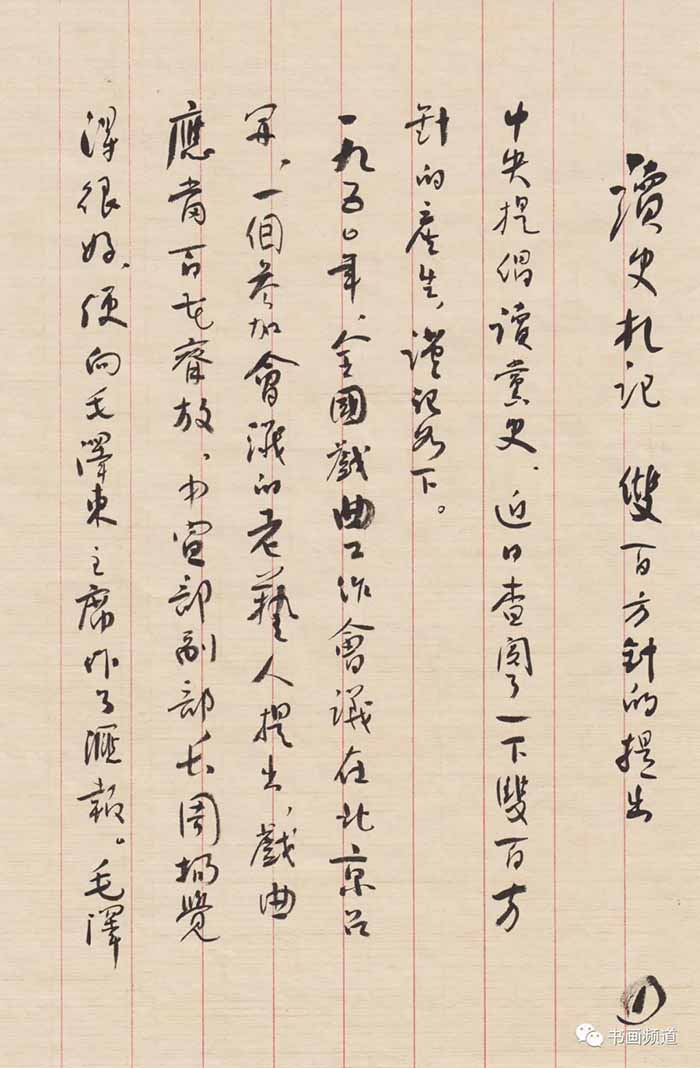 讀史札记 雙百方針的提出
中央提倡读黨史、近日查閱了一下雙百方
針的產生，謹记如下。
一九五〇年、全國戲曲工作會議在北京召
开、一個参加會議的老藝人提出、戲曲
應當百花齊放、中宣部副部长周揚覺
得很好、便向毛澤東主席作了匯報。毛澤
①
书画频道